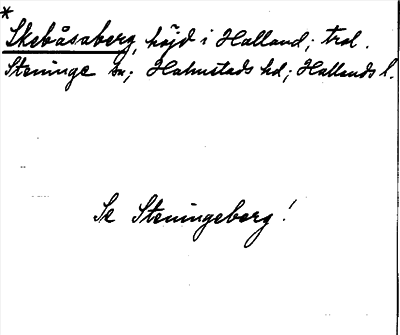 *
Skebåsaberg, höjd i Halland; trol.
Steninge sn; Halmstads hd; Hallands l.
Se Steningeberg!